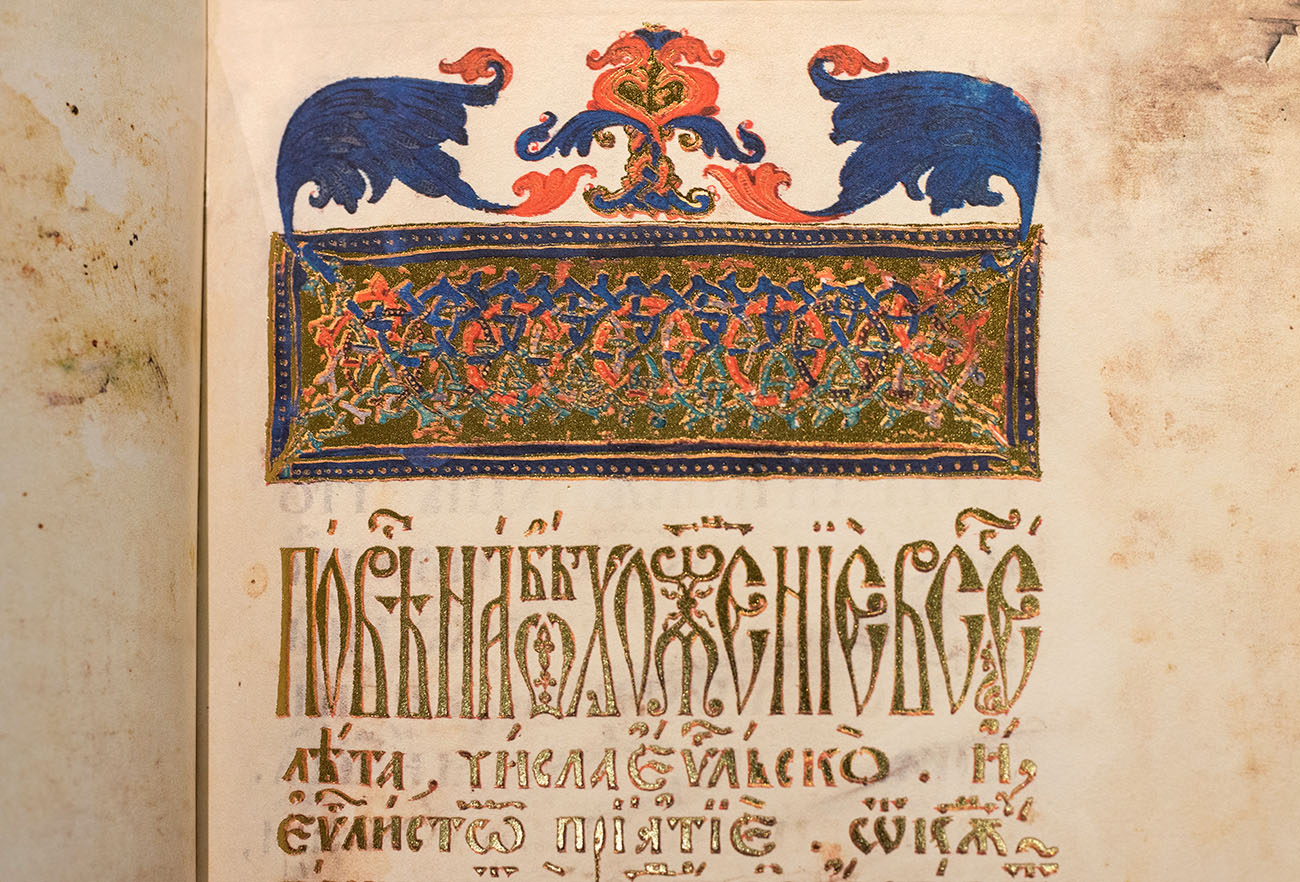 ПОВѢНА ѠБЬХОЖЕНІЕ ВСЕ
лѣта, чи́сла еѵ҃льско . и҆
еѵ҃листѡ прїѧтїе . ѿкѫ